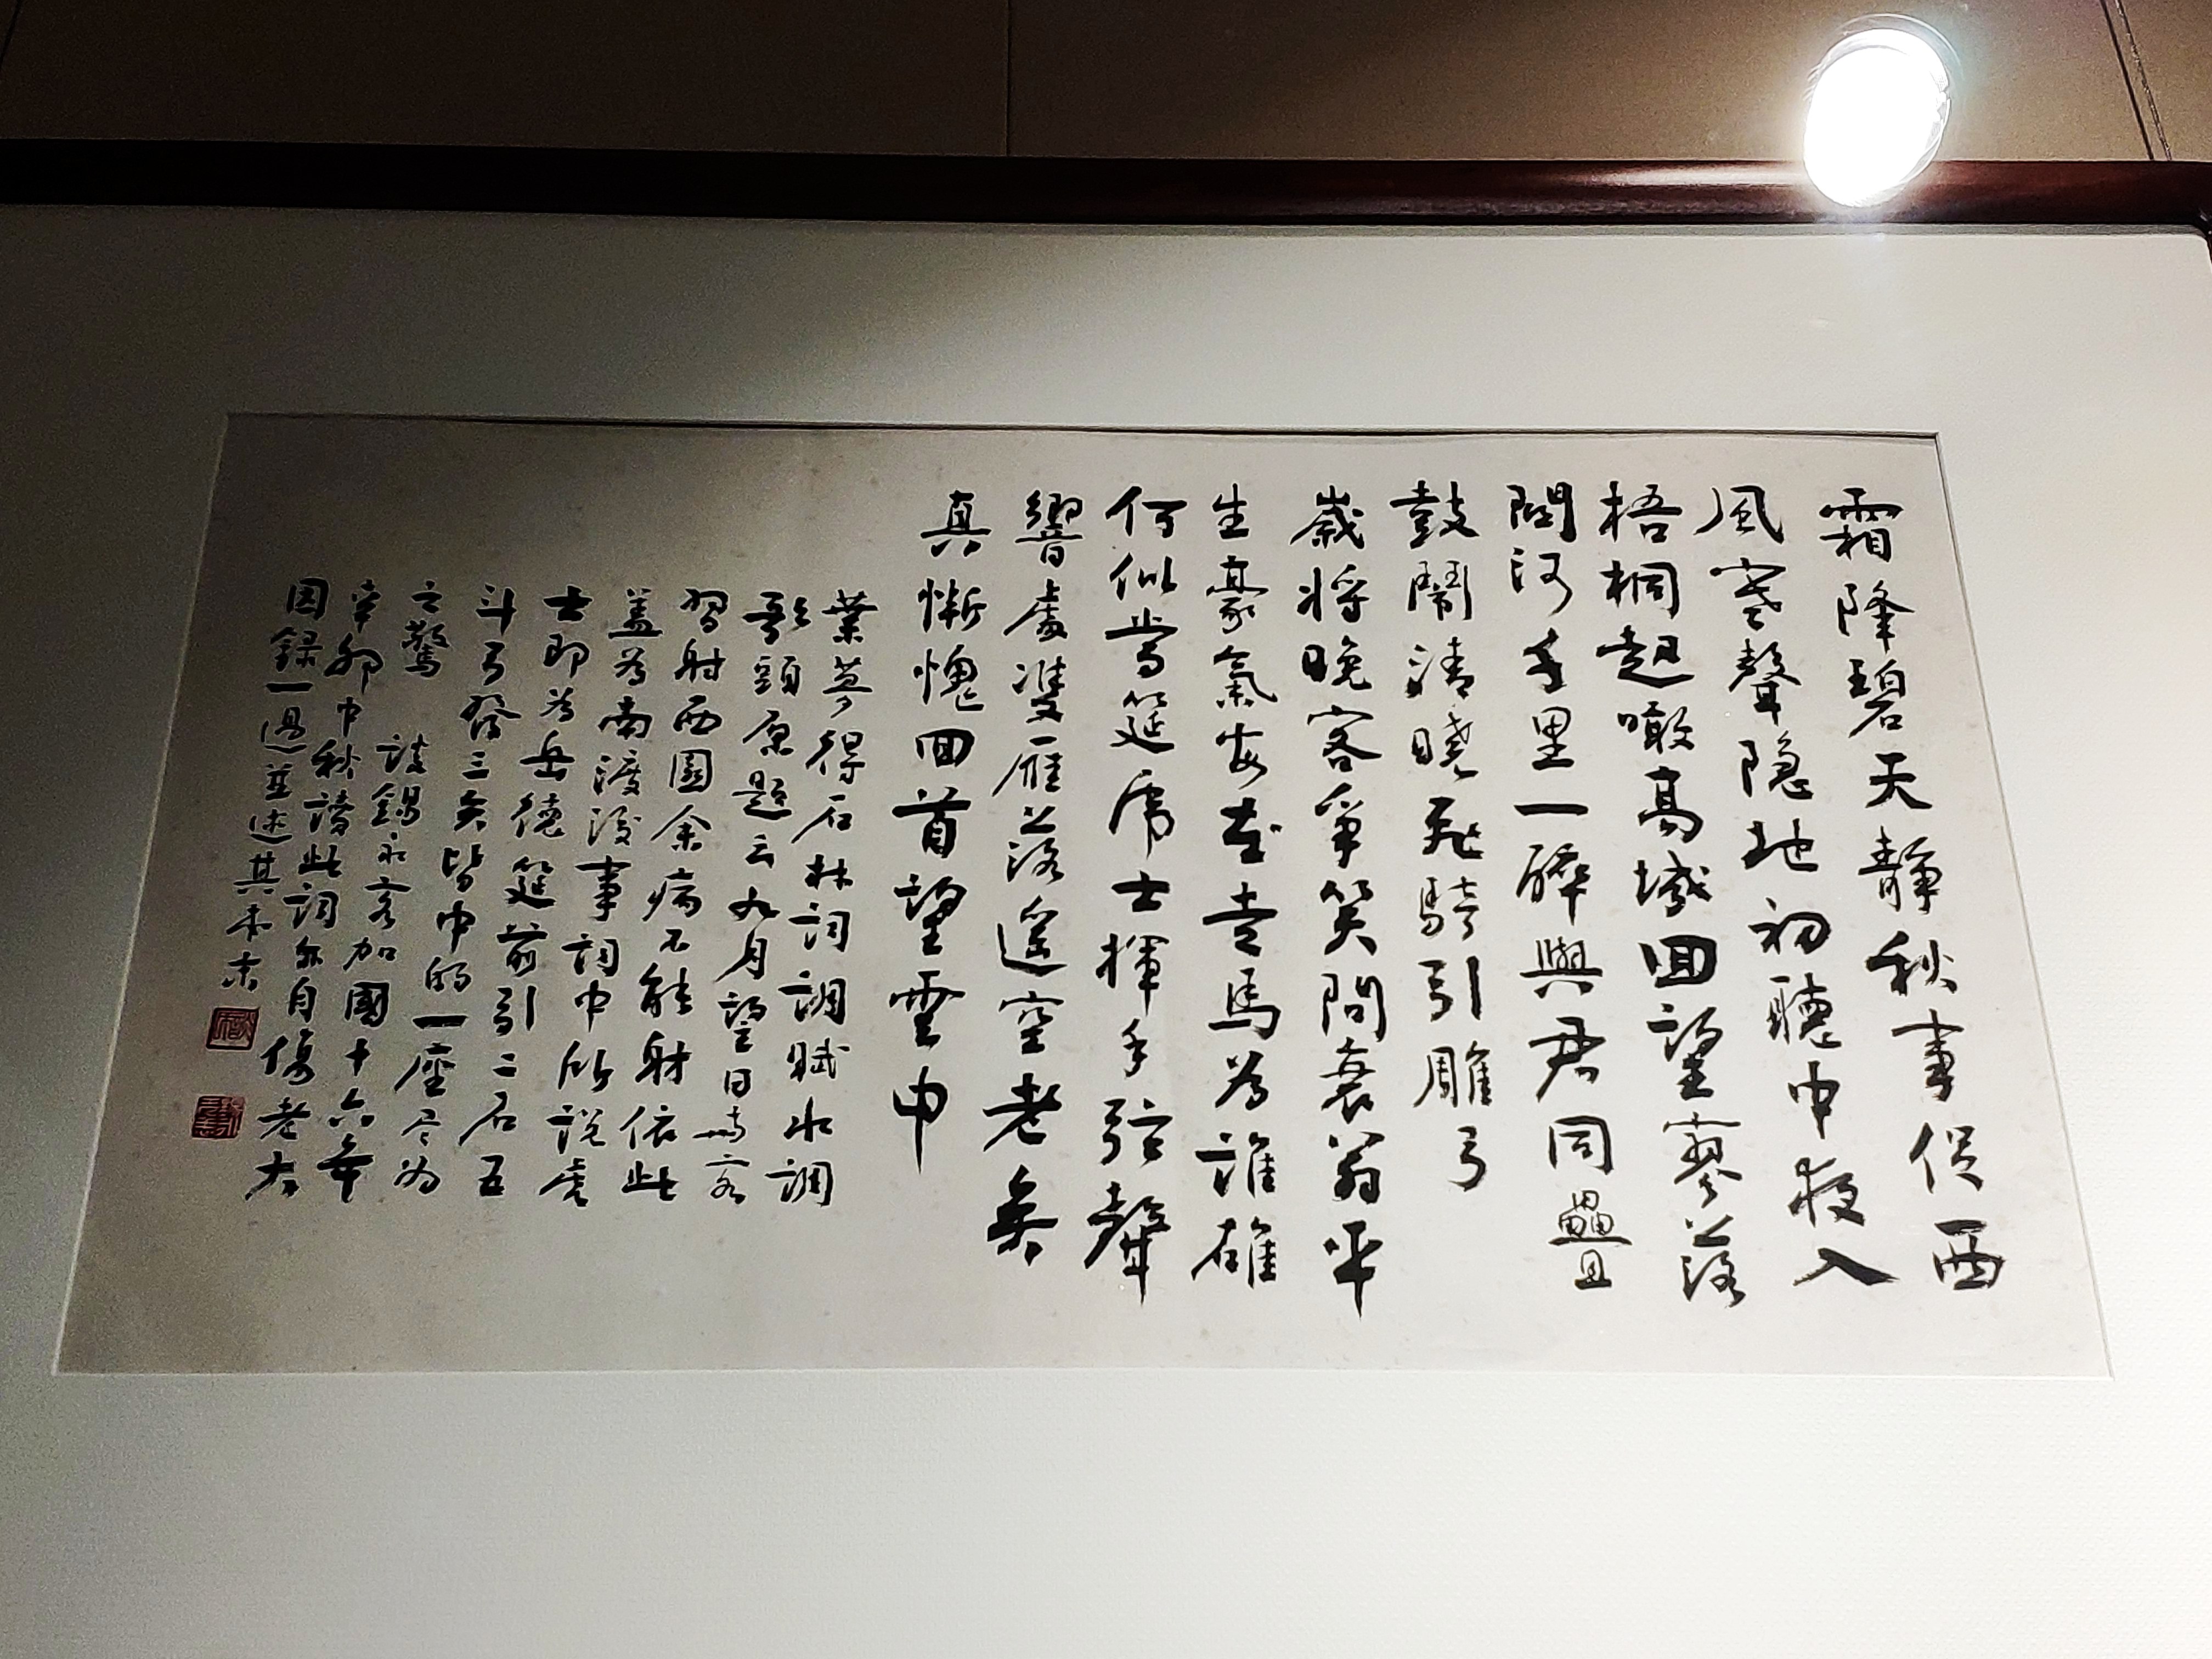 霜降碧天靜秋事促西
風寒聲隱地初聽中夜入
梧桐起瞰高城回望寥落
關河千里一醉與君同疊
鼓鬧清曉飛騎引雕弓
歲將晚客爭笑問衰翁平
生豪氣安在走馬為誰雄
何似當筵虎士揮手弦聲
響處雙雁落遙空老矣
真慚愧回首望雲中
葉夢得石林詞調賦水調
歌頭原題云九月望日與客
習射西園余病不能射依此
蓋為南渡後事詞中所說虎
士即為岳德筵前引二石五
斗弓發三矢皆中的一座盡為
之驚 談錫永客加國十六年
辛卯中秋讀此詞亦自傷老大
因錄一過並述其本末